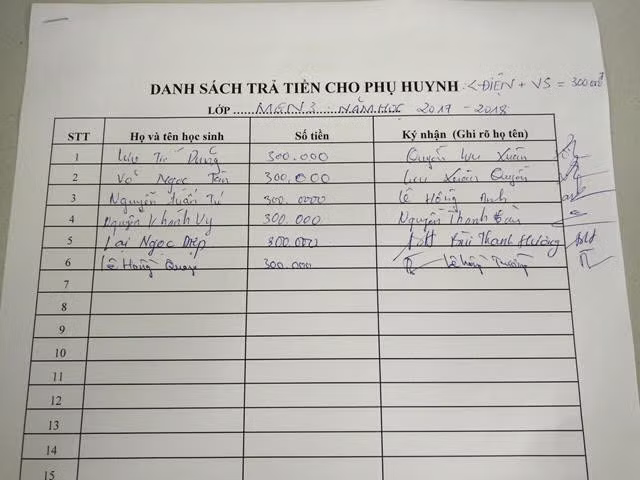 DANH SÁCH TRẢ TIỀN CHO PHỤ HUYNH : < ĐIỆN + VS = 300.000đ
LỚP ................ NĂM HỌC 2017 - 2018
STT Họ và tên học sinh Số tiền Ký nhận (Ghi rõ họ tên)
1 Lưu Trí Dũng 300.000 Quyền Lưu Xuân
2 Võ Ngọc Tân 300.000 Lưu Xuân Quyền
3 Nguyễn Tuấn Tú 300.0000 Lê Hồng Anh
4 Nguyễn Khánh Vy 300.000 Nguyễn Thanh
5 Lại Ngọc Diệp 300.000 Bùi Thanh Hương
6 Lê Hồng 300.000 Lê Hồng
7
8
9
10
11
12
13
14
15